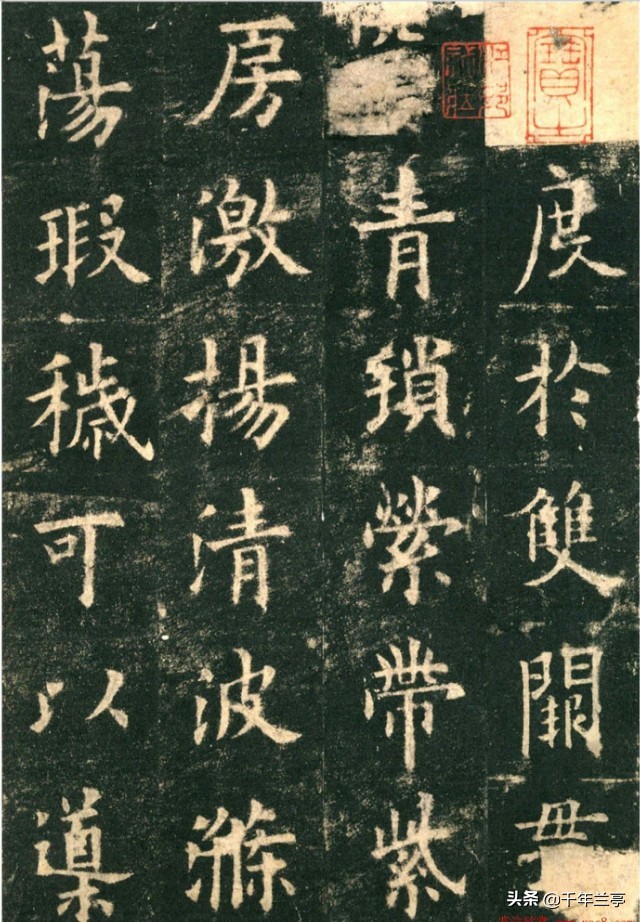 度於雙闕
青鎖縈帶紫
房激揚清波滌
蕩瑕穢可以導
头条 @千年兰亭